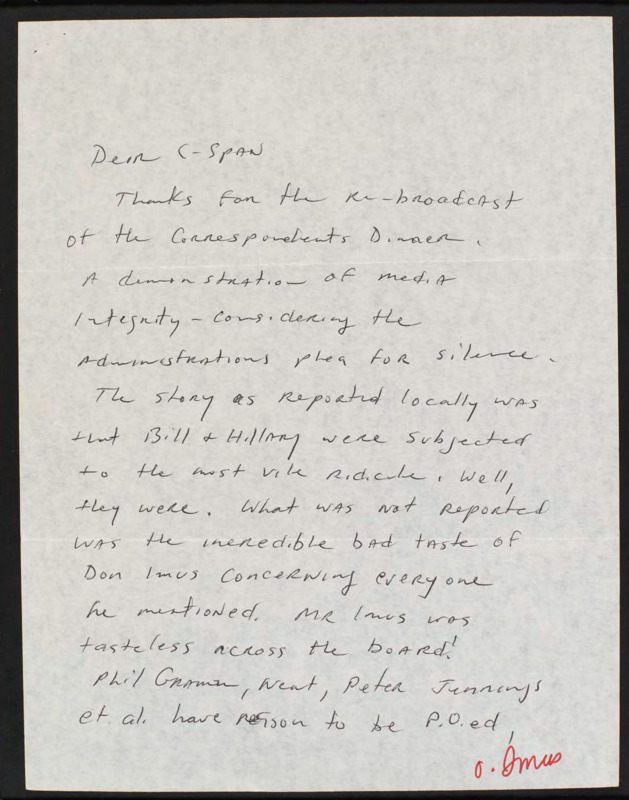 Dear C-SPAN
Thanks for the re-broadcast
of the Correspondents Dinner.
A demonstration of media
Integrity - considering the
Administrations plea for silence.
The story as reported locally was
that Bill & Hillary were subjected
to the most vile ridicule. Well,
they were. What was not reported
was the incredible bad taste of
Don Imus concerning everyone
he mentioned. Mr Imus was
tasteless across the board!
Phil Gramm, Newt, Peter Jennings
et. al. have reason to be P.O.ed,
O. Imus